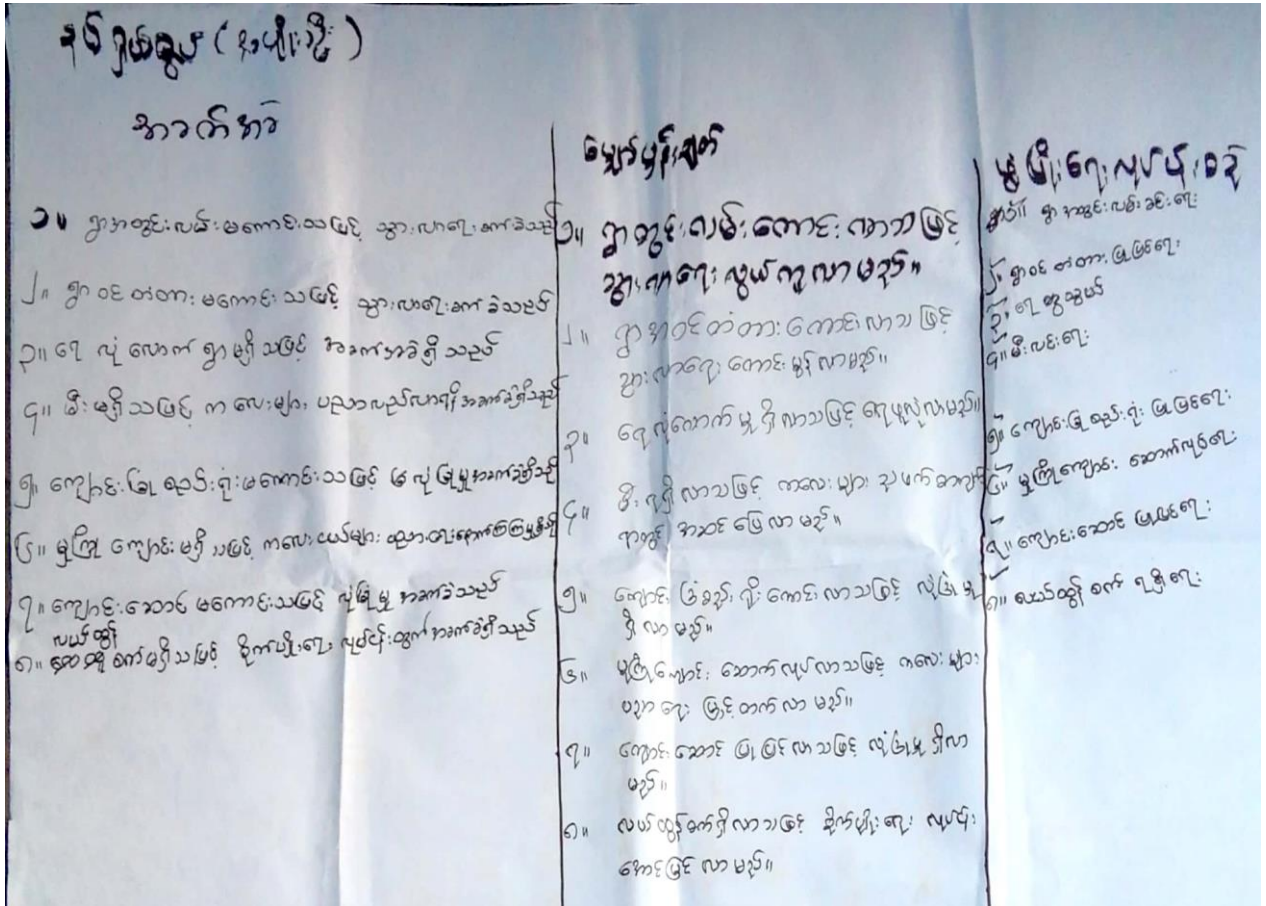 (အမျိုးသမီး)
အခက်အခဲ
၁။ ရွာအတွင်းလမ်းမကောင်းသဖြင့် သွားလာရေးခက်ခဲသည်
၂။ ရွာဝင်တံတားမကောင်းသဖြင့် သွားလာရေးခက်ခဲသည်
၃။ ရေလုံလောက်စွာမရှိသဖြင့် အခက်အခဲရှိသည်
၄။ မီးမရှိသဖြင့် ကလေးများ ပညာလည်လာရန်အခက်ခဲရှိသည်
၅။ ကျောင်းခြံစည်းရိုးမကောင်းသဖြင့် မလုံခြုံမှုအခက်ခဲရှိသည်
၆။ မူကြိုကျောင်းမရှိသဖြင့် ကလေးငယ်များ ပညာရေးနောက်ကြကျမှုရှိသည်
၇။ ကျောင်းဆောင်မကောင်းသဖြင့် လုံခြုံမှုအခက်ခဲသည်
လယ်ထွန်
၈။ စက်မရှိသဖြင့် စိုက်ပျိုးရေးလုပ်ငန်းတွက်အခက်ခဲရှိသည်
မျှော်မှန်းချက်
၁။ ရွာတွင်းလမ်းကောင်းလာသဖြင့်
သွားလာရေးလွယ်ကူလာမည်။
၂။ ရွာအဝင်တံတားကောင်းလာသဖြင့်
သွားလာရေးကောင်းမွန်လာမည်။
၃။ ရေလုံလောက်မှုရှိလာသဖြင့် ရေဖူလုံလာမည်။
၄။ မီးရရှိလာသဖြင့် ကလေးများ
ရာတွင် အဆင်ပြေလာမည်။
၅။ ကျောင်းခြံစည်းရိုးကောင်းလာသဖြင့် လုံခြုံမှု
ရှိလာမည်။
၆။ မူကြိုကျောင်းဆောက်လုပ်လာသဖြင့် ကလေးများ
ပညာရေးမြှင့်တက်လာမည်။
၇။ ကျောင်းဆောင်ပြုပြင်လာသဖြင့် လုံခြုံမှုရှိလာ
မည်။
၈။ လယ်ထွန်စက်ရှိလာသဖြင့် စိုက်ပျိုးရေးလုပ်ငန်း
အောင်မြင်လာမည်။
ဖွံ့ဖြိုးရေးလုပ်ငန်းစဉ်
၁။ ရွာအတွင်းလမ်းခင်းရေး
၂။ ရွာဝင်တံတားပြုပြင်ရေး
၃။ ရေသွယ်
၄။ မီးလင်းရေး
၅။ ကျောင်းခြံစည်းရိုးပြုပြင်ရေး
၆။ မူကြိုကျောင်းဆောက်လုပ်ရေး
၇။ ကျောင်းဆောင်ပြုပြင်ရေး
၈။ လယ်ထွန်စက်ရရှိရေး